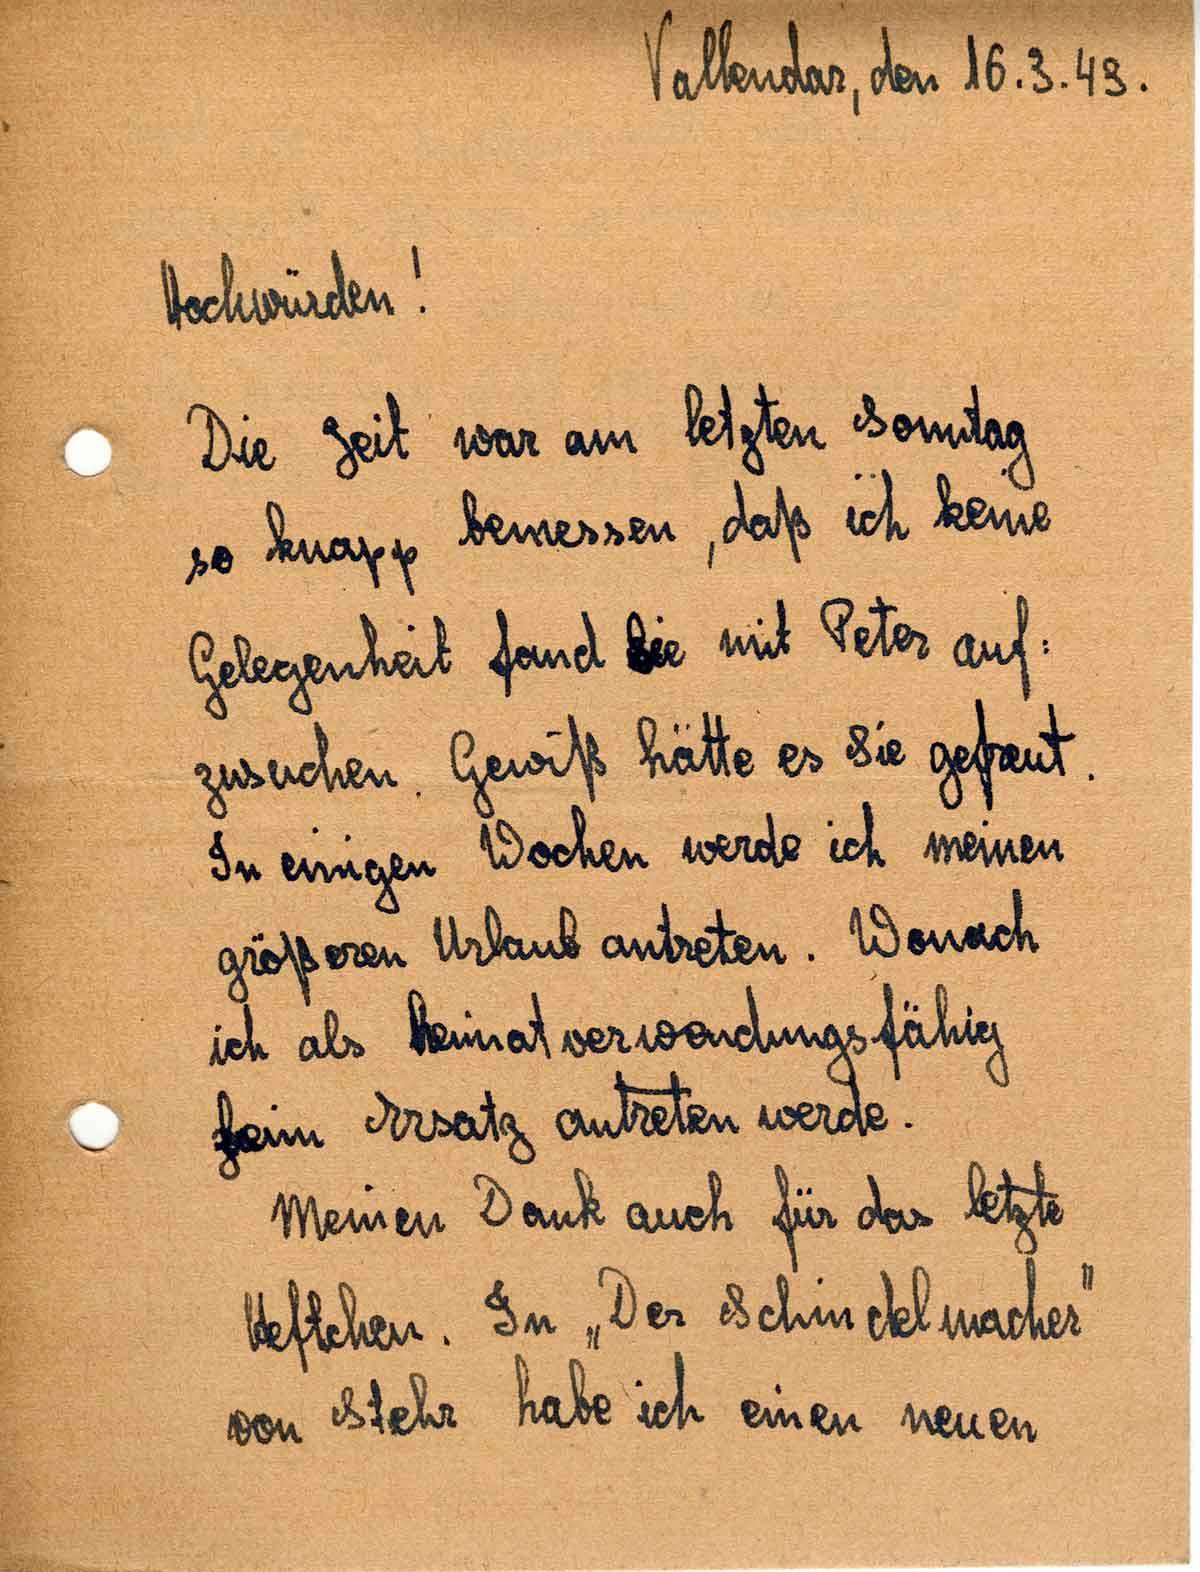 Vallendar, den 16.3.43.
Hochwürden!
Die Zeit war am letzten Sonntag
so knapp bemessen, daß ich keine
Gelegenheit fand Sie mit Peter auf:
zusuchen. Gewiß hätte es Sie gefreut.
In einigen Wochen werde ich meinen
größeren Urlaub antreten. Wonach
ich als heimatverwendungsfähig
beim Ersatz antreten werde.
Meinen Dank auch für das letzte
Heftchen. In „Der Schindelmacher"
von Stehr habe ich einen neuen